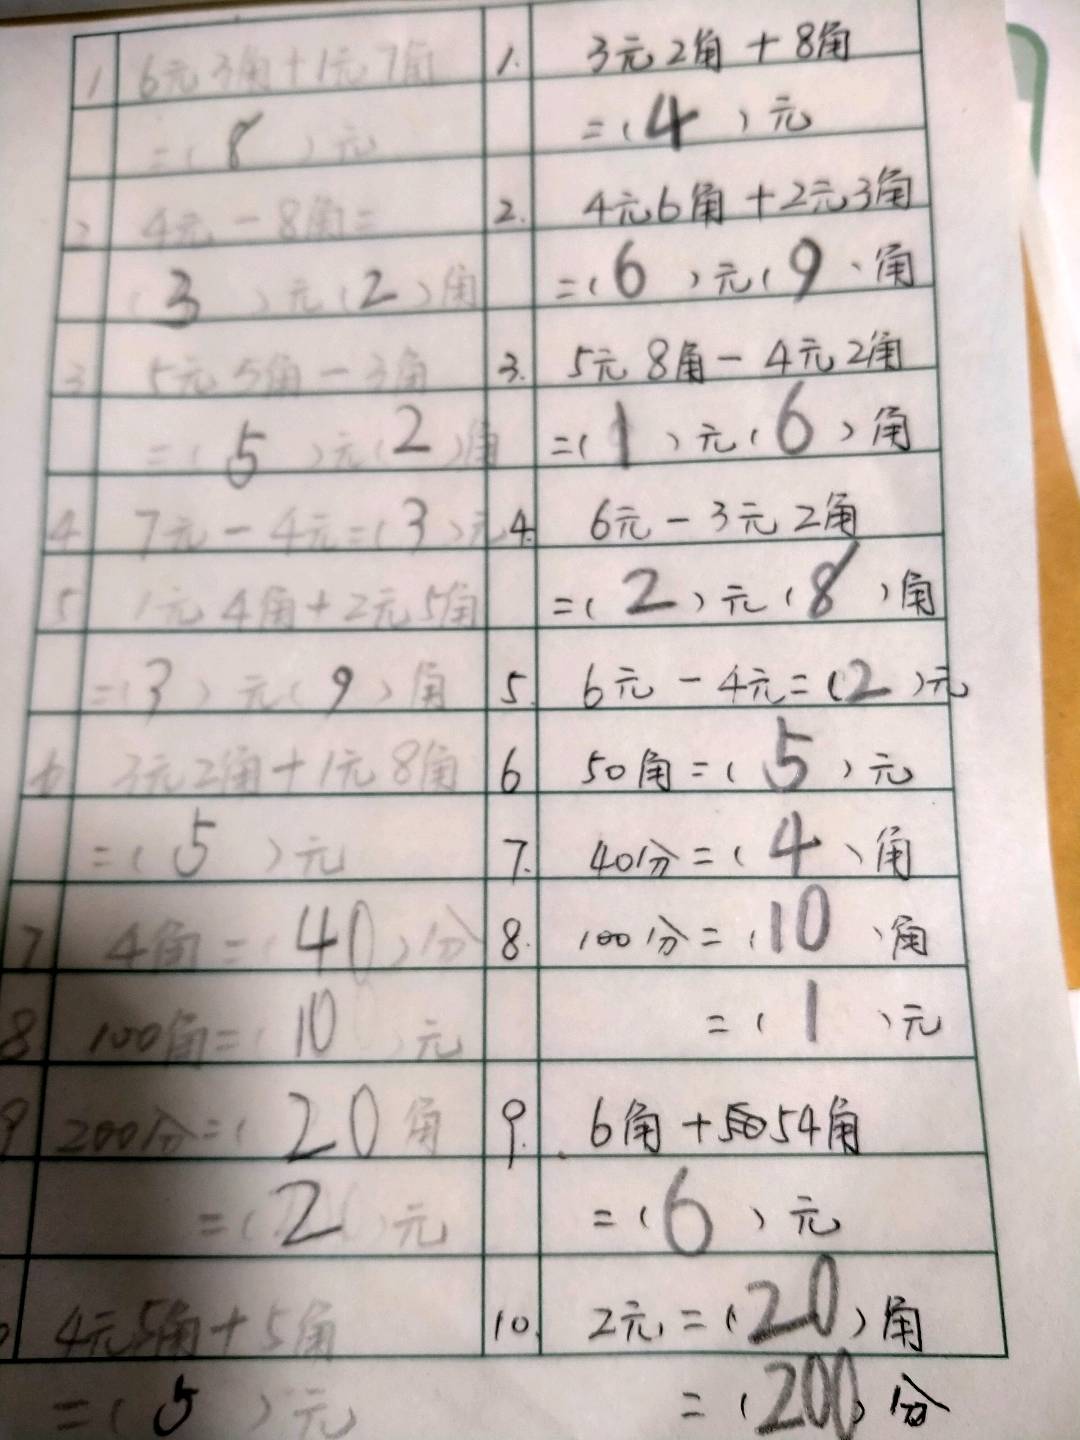 1 6元3角+1元7角
=(8)元
2 4元-8角=
(3)元(2)角
3 5元5角-3角
=(5)元(2)角
4 7元-4元=(3)元
5 1元4角+2元5角
=(3)元(9)角
6 3元2角+1元8角
=(5)元
7 4角=(40)分
8 100角=(10)元
9 200分=(20角
=(2)元
4元5角+5角
=(5)元
1. 3元2角+8角
=(4)元
2. 4元6角+2元3角
=(6)元(9)角
3. 5元8角-4元2角
=(1)元(6)角
4. 6元-3元2角
=(2)元(8)角
5. 6元-4元=(2)元
6 50角=(5)元
7. 40分=(4)角
8. 100分=(10)角
=(1)元
9. 6角+54角
=(6)元
10. 2元=(20)角
=(200)分